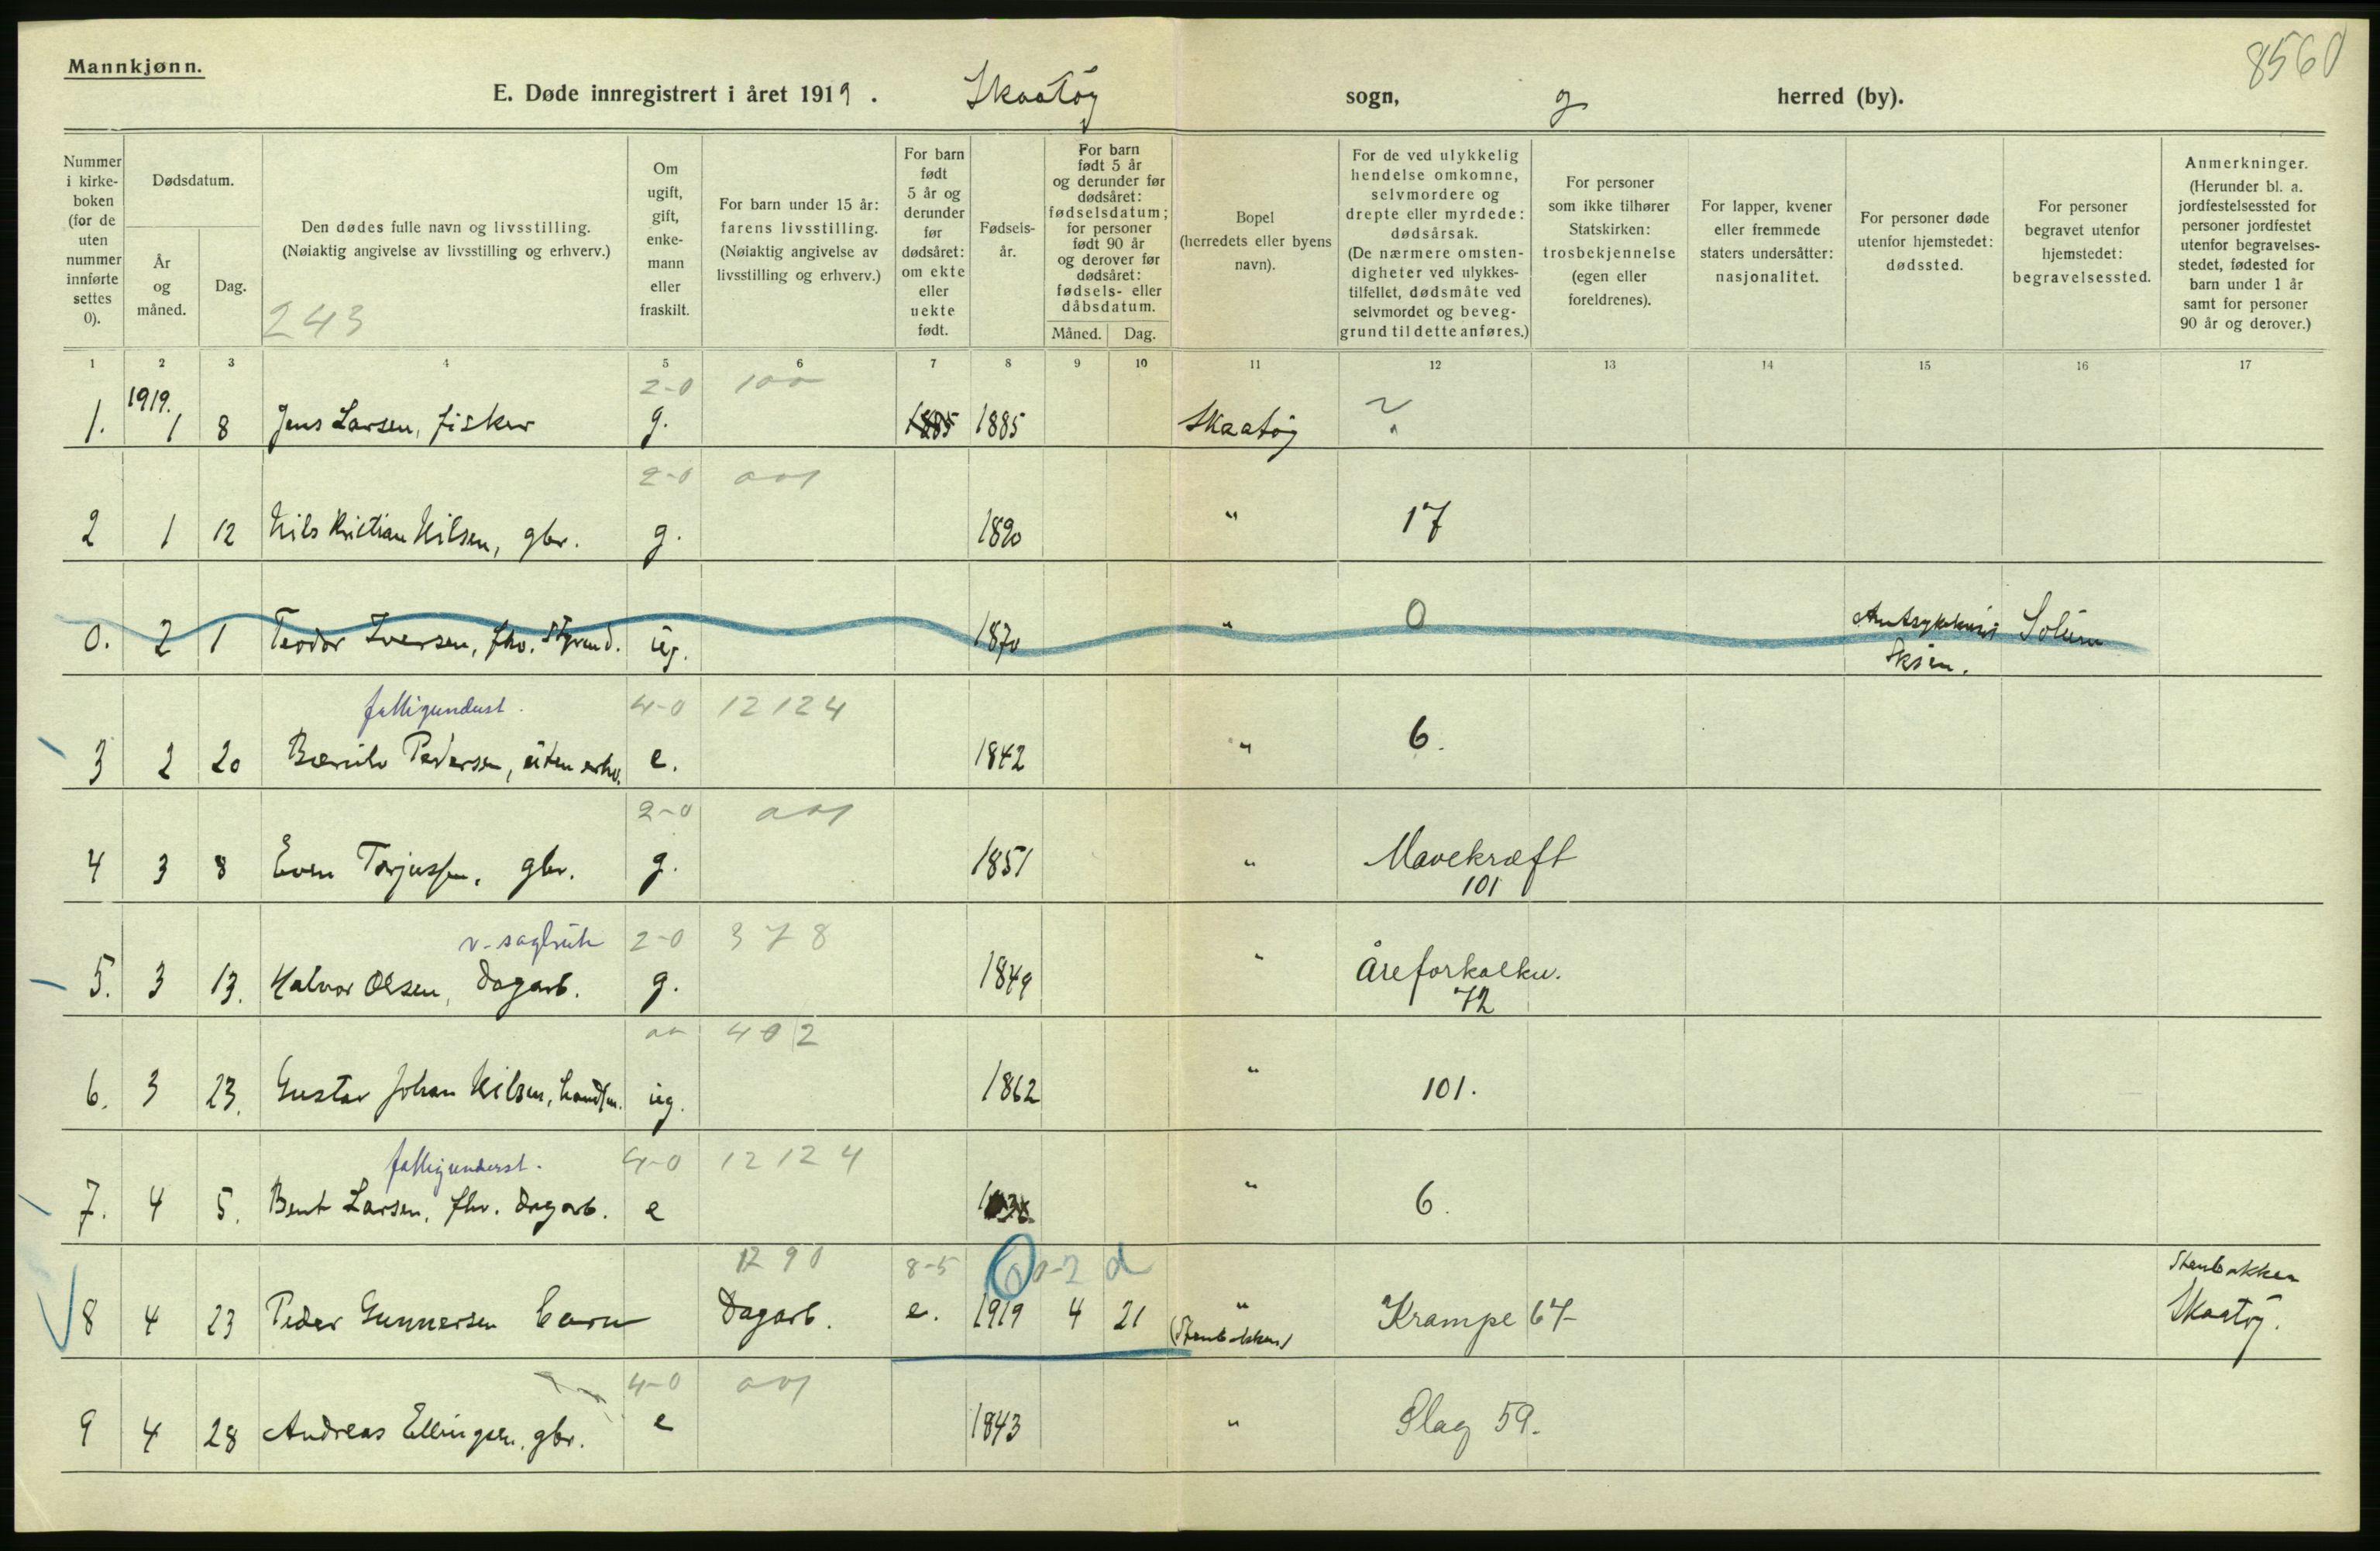 Mannkjønn.
8560
E. Døde innregistrert i året 1919. Skaatøy sogn, g herred (by).
Nummer i kirkeboken (for de uten nummer innførte settes 0).
Dødsdatum.
År og måned.
Dag.
Den dødes fulle navn og livsstilling.
(Nøiaktig angivelse av livsstilling og erhverv.)
243
Om ugift, gift, enkemann eller fraskilt.
For barn under 15 år: farens livsstilling.
(Nøiaktig angivelse av livsstilling og erhverv.)
For barn født 5 år og derunder før dødsåret: om ekte eller uekte født.
Fødselsår.
For barn født 5 år og derunder før dødsåret: fødselsdatum; for personer født 90 år og derover før dødsåret: fødsels- eller dåbsdatum.
Måned. Dag.
Bopel
(herredets eller byens navn).
For de ved ulykkelig hendelse omkomne, selvmordere og drepte eller myrdede: dødsårsak.
(De nærmere omstendigheter ved ulykkestilfellet, dødsmåte ved selvmordet og beveggrund til dette anføres.)
For personer som ikke tilhører Statskirken: trosbekjennelse (egen eller foreldrenes).
For lapper, kvener eller fremmede staters undersåtter: nasjonalitet.
For personer døde utenfor hjemstedet: dødssted.
For personer begravet utenfor hjemstedet: begravelsessted.
Anmerkninger.
(Herunder bl. a. jordfestelsessted for personer jordfestet utenfor begravelsesstedet, fødested for barn under 1 år samt for personer 90 år og derover.)
1 2 3 4 5 6 7 8 9 10 11 12 13 14 15 16 17
1919. 2-0 100
1. 1 8 Jens Larsen, fisker g. 1885 1885 Skaatøy ?
2-0 001
2 1 12 Nils Kristian Nilsen, gbr. g. 1890 " 17
0. 2 1 Teodor Iversen, fhv. styrmd. ug. 1870 " 0 Amtsykehuset Solum
Skien.
fattigunderst. 4-0 12124
3 2 20 Pedersen, uten erhv. e. 1842 " 6.
2-0 001
4 3 8 Even Torjussen, gbr. g. 1851 " Mavekræft
101
v. sagbruk 2-0 378
5. 3 13. Halvor Olsen, dagarb. g. 1849 " Åreforkalkn.
72
00 402
6. 3 23. Gustav Johan Nilsen, handlm. ug. 1862 " 101.
fattigunderst. 4-0 12124
7. 4 5. Bent Larsen, fhv. dagarb. e " 6.
1290 8-5 0-2 d Stenbakken
8 4 23 Peder Gunnersen barn dagarb. e. 1919 4 21 " Krampe 67 Skaatøy.
(Stenbakken)
4-0 001
9 4 28 Andreas Ellingsen, gbr. e 1843 " Slag 59.